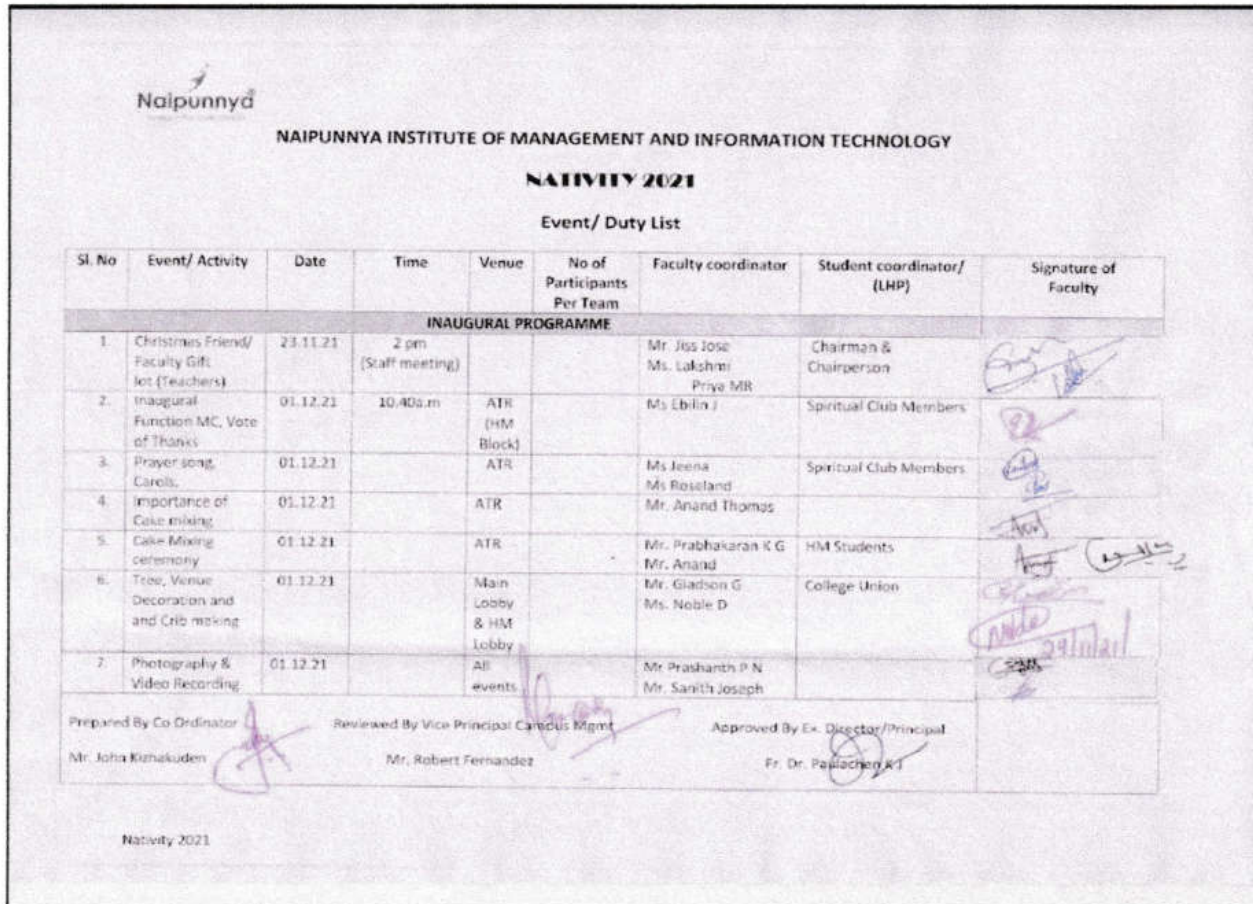 Naipunnya
NAIPUNNYA INSTITUTE OF MANAGEMENT AND INFORMATION TECHNOLOGY
NATIVITY 2021
Event/ Duty List
Sl. No Event/ Activity Date Time Venue No of Participants Per Team Faculty coordinator Student coordinator/ (LHP) Signature of Faculty
INAUGURAL PROGRAMME
1. Christmas Friend/ Faculty Gift lot (Teachers) 23.11.21 2 pm (Staff meeting) Mr. Jiss Jose Ms. Lakshmi Priya MR Chairman & Chairperson
2. Inaugural Function MC, Vote of Thanks 01.12.21 10.40a.m ATR (HM Block) Ms Ebilin J Spiritual Club Members
3. Prayer song, Carols, 01.12.21 ATR Ms Jeena Ms Roseland Spiritual Club Members
4. Importance of Cake mixing 01.12.21 ATR Mr. Anand Thomas
5. Cake Mixing ceremony 01.12.21 ATR Mr. Prabhakaran K G Mr. Anand HM Students
6. Tree, Venue Decoration and and Crib making 01.12.21 Main Lobby & HM Lobby Mr. Gladson G Ms. Noble D College Union 29/11/21
7. Photography & Video Recording 01.12.21 All events Mr Prashanth P N Mr. Sanith Joseph
Prepared By Co Ordinator Reviewed By Vice Principal Campus Mgmt Approved By Ex. Director/Principal
Mr. John Kizhakuden Mr. Robert Fernandez Fr. Dr. Paulachen K J
Nativity 2021